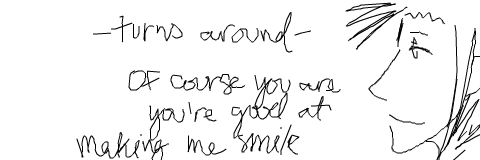 -turns around-
Of course you are
you're good at
making me smile